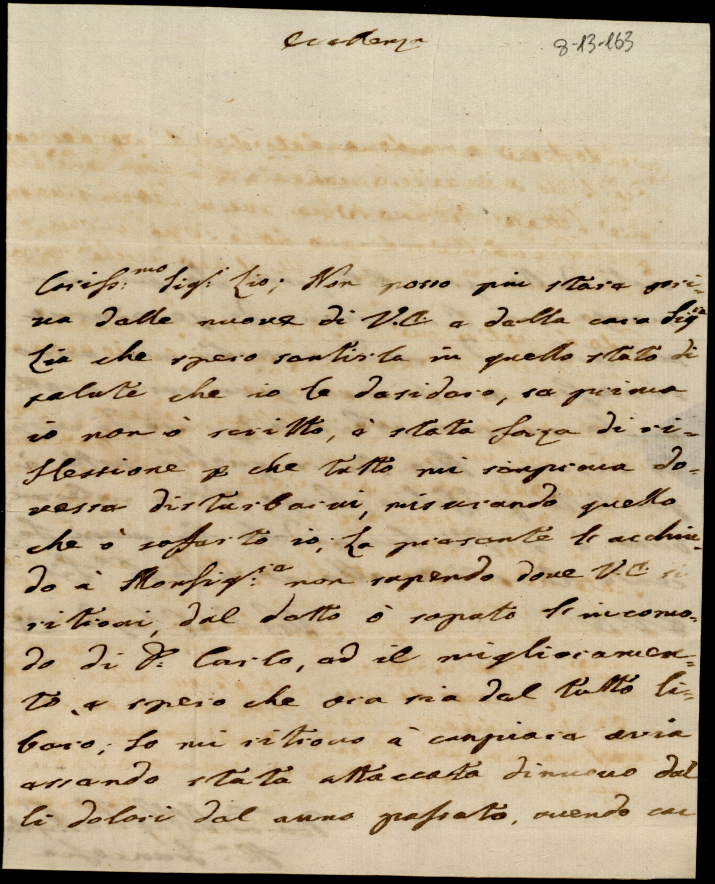 Eccellenza
8-13-163
Cariss:mo Sig:r Zio; Non posso più stare pri-
va delle nuove di V.E. e della cara Sig:ra
Zia che spero sentirla in quello stato di
salute che io le desidero, se prima
io non ò scritto, è stata forza di ri-
flessione p che tutto mi sempreva do-
vesse disturbarvi, misurando quello
che ò sofferto io; La presente le acchiu-
do à Monsig:re non sapendo dove V.E. si
ritrovi, dal detto ò saputo le incomo-
do di D: Carlo, ed il miglioramen-
to, e spero che ora sia del tutto li-
bero; Io mi ritrovo à canpiare aria
essendo stata attaccata dinuovo dal
li dolori del anno passato, avendo cac